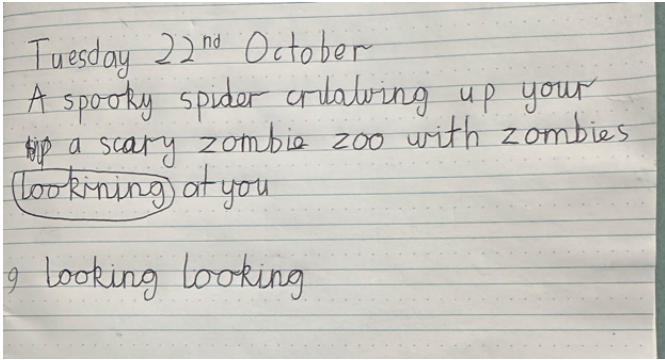 Tuesday 22nd October
A spooky spider up your
a scary zombie zoo with zombies
lookining at you
g looking looking